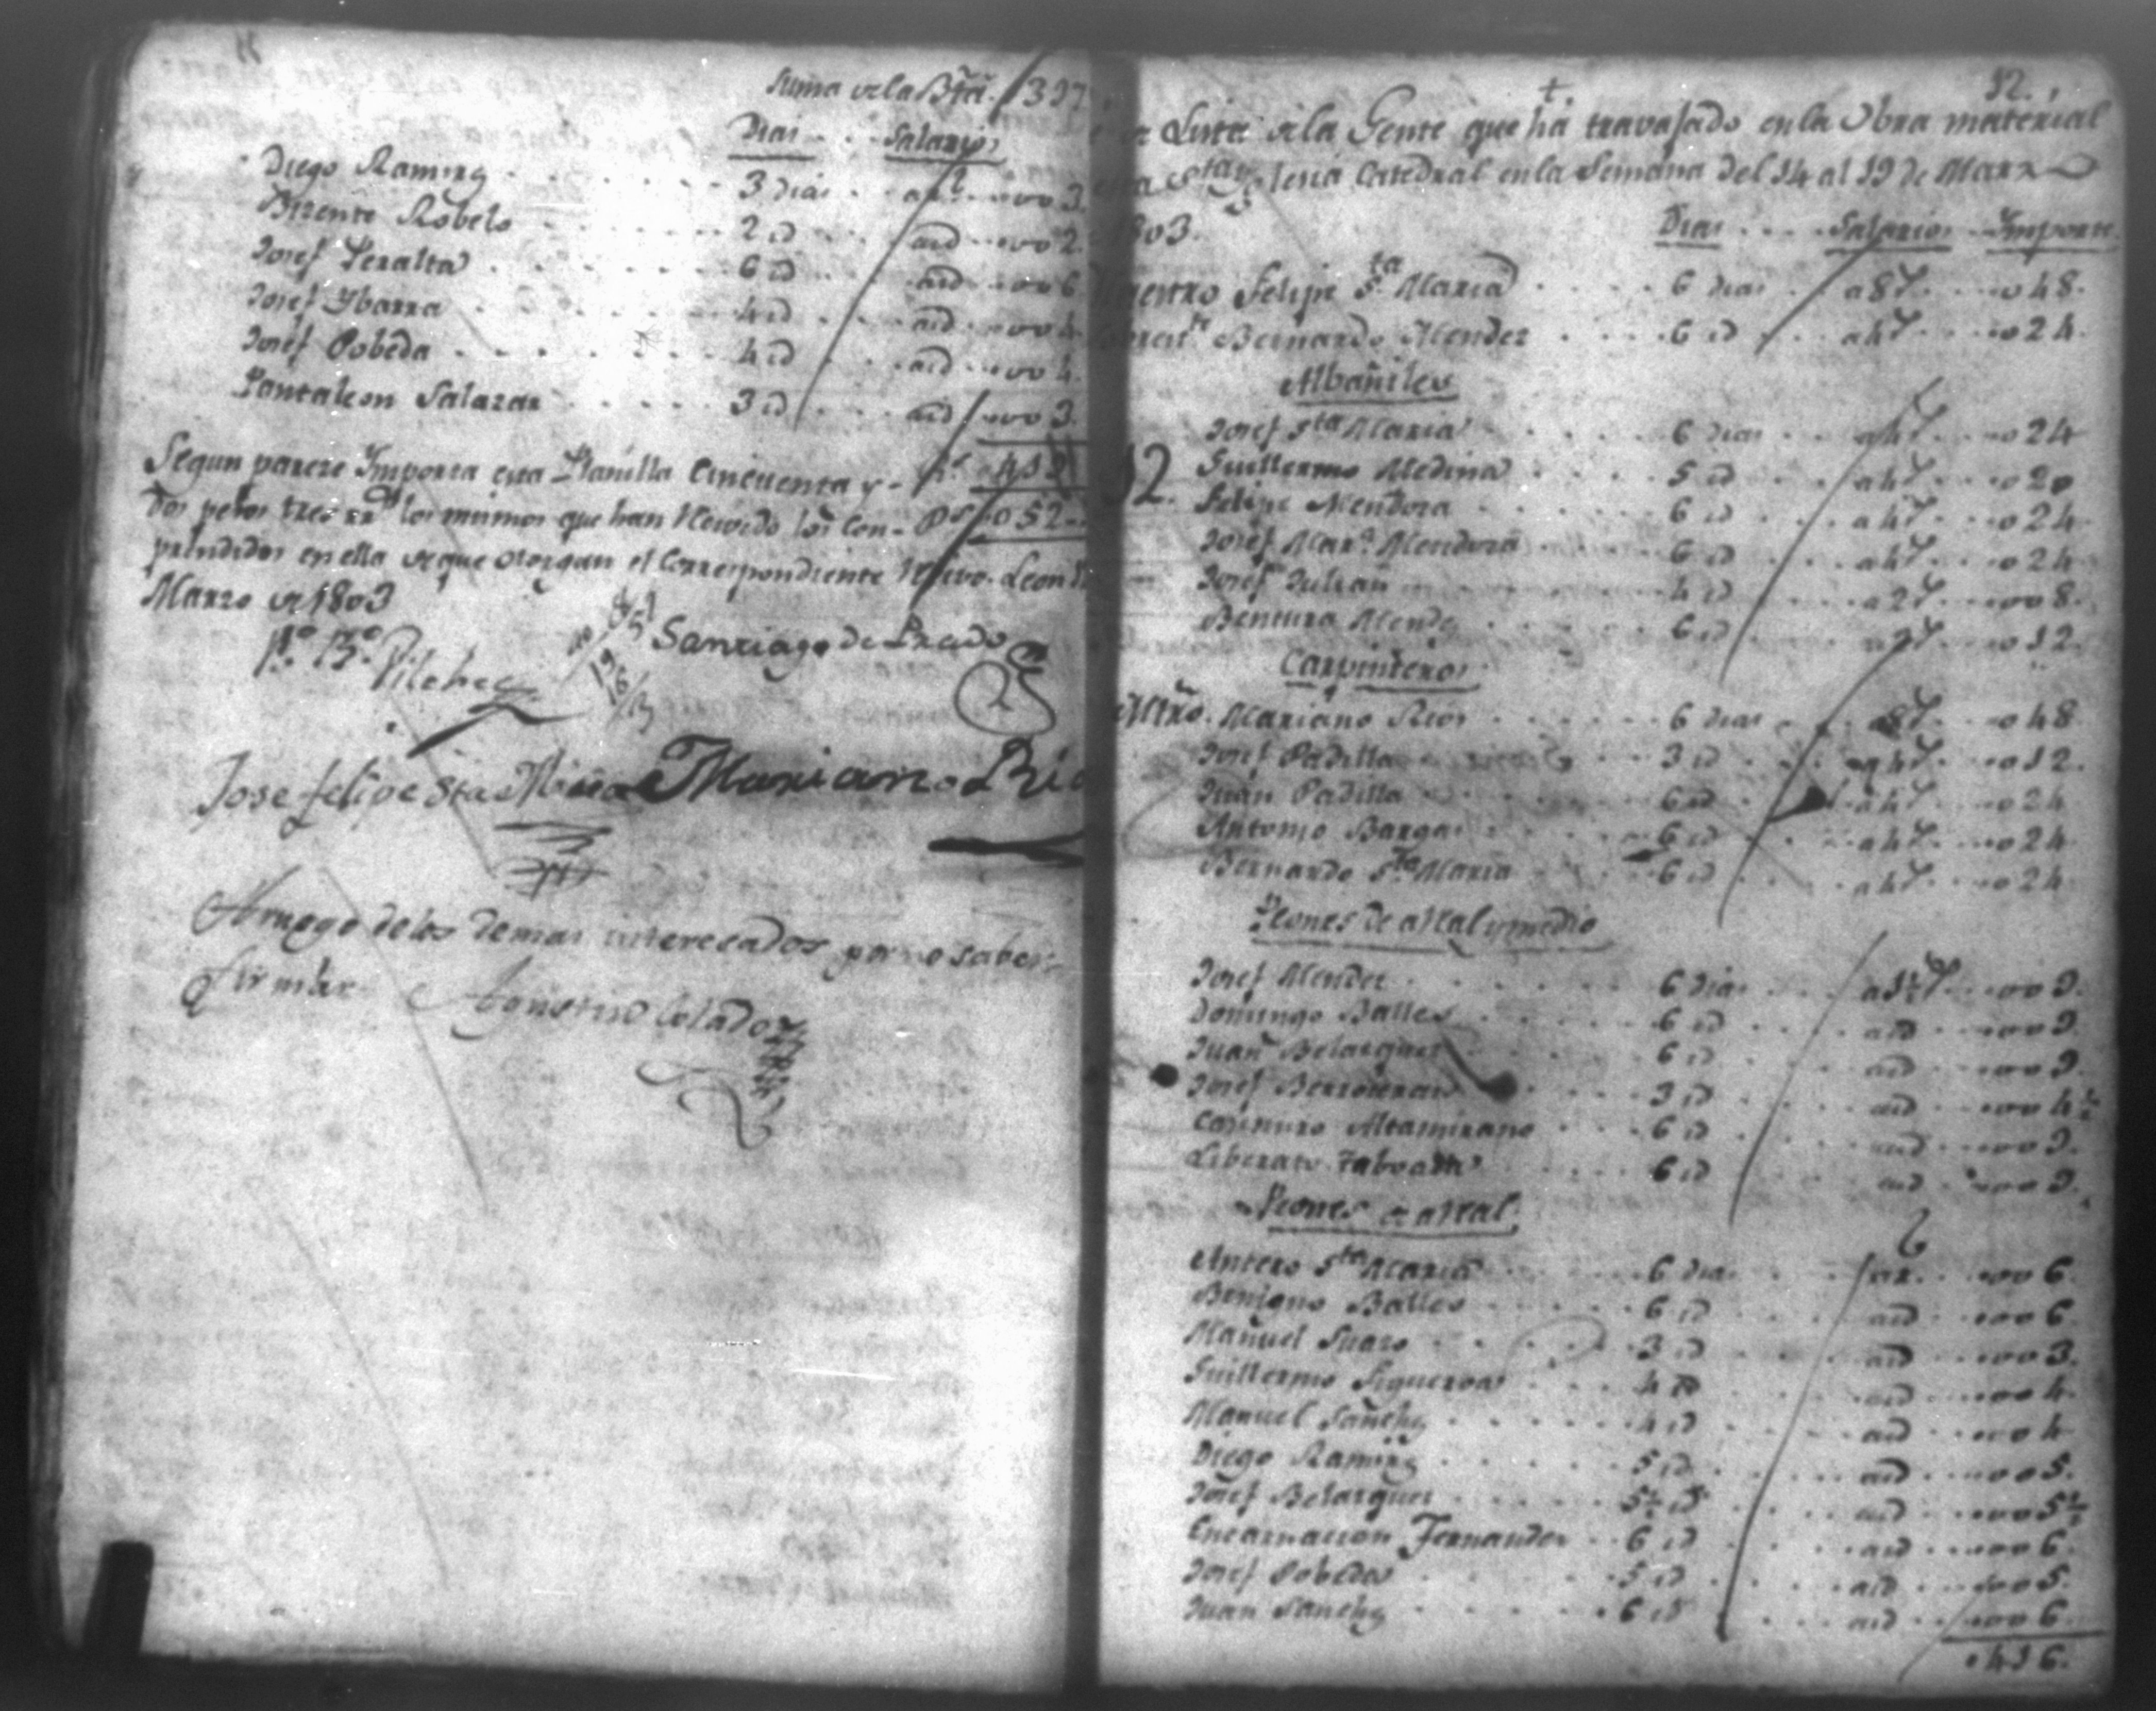 Suma de la Bta. 397
Dias . . Salarios
Diego Ramirez . . . . . . 3 dias . . a 1 r. . . 003.
Bizente Robelo . . . . . . 2 id . . . aid . . 002.
Josef Peralta . . . . . . 6 id . . . aid . . 006
Josef Ybarra . . . . . . 4 id . . . aid . . 004
Josef Pobeda . . . . . . 4 id . . . aid . . 004.
Pantaleon Salazar . . . . . 3 id . . . aid . . 003.
Segun parece Importa esta Planilla Cincuenta y - rs. 419
dos pesos tres rrs. los mismos que han Recivido los Con- Ps. 052..
prendidos en ella de que otorgan el Correspondiente Recivo. Leon
Marzo de 1803
Santiago de Prado
Jose felipe Sta Maria Mariano Rio
Arruego de los demas interecados por no saber
firmar Agustin Colador
12.
†
Lista de la Gente que ha travajado en la Obra material
Sta. Yglesia Catedral en la Semana del 14 al 19 de Marzo
803.
Dias . . . . Salarios . . Importe.
Maestro Felipe Sta. Maria . . . . 6 dias . . a 8 r . . . 048.
Bernardo Mendez . . . . 6 id . . a 4 r . . . 024.
Albañiles
Josef Sta Maria . . . . 6 dias . . a 4 r . . . 024
Guillermo Medina . . . . 5 id . . . a 4 r . . . 020
Felipe Mendoza . . . . 6 id . . . a 4 r . . . 024
Josef Mara. Mendoza . . . . 6 id . . . a 4 r . . . 024
Josef Julian . . . . 4 id . . . a 2 r . . . 008.
Bentura Mende . . . . 6 id . . . a 2 r . . . 012.
Carpinteros
Mtro. Mariano Rios . . . . 6 dias . . a 8 r . . . 048
Josef Padilla . . . . 3 id . . . a 4 r . . . 012.
Juan Padilla . . . . 6 id . . . a 4 r . . . 024
Antonio Bargas . . . . 6 id . . . a 4 r . . . 024
Bernardo Sta. Maria . . . . 6 id . . . a 4 r . . . 024
Peones de a Real y medio
Josef Mendez . . . . 6 dias . . a 1½ r . . . 009.
Domingo Balles . . . . 6 id . . . aid . . . 009
Juan Belasques . . . . 6 id . . . aid . . . 009
Josef Berroteran . . . . 3 id . . . aid . . . 004½
Casimiro Altamirano . . . . 6 id . . . aid . . . 009.
Liberato Taboada . . . . 6 id . . . aid . . . 009.
Peones de a Real
Antero Sta Maria . . . . 6 dias . . a 1 r. . . . 006
Benigno Balles . . . . 6 id . . . aid . . . 006
Manuel Suazo . . . . 3 id . . . aid . . . 003.
Guillermo Figueroa . . . . 4 id . . . aid . . . 004.
Manuel Sanchez . . . . 4 id . . . aid . . . 004
Diego Ramirez . . . . 5 id . . . aid . . . 005.
Josef Belasques . . . . 5½ id . . . aid . . . 005½
Encarnacion Fernandez . . 6 id . . . aid . . . 006
Josef Pobeda . . . . 5 id . . . aid . . . 005.
Juan Sanchez . . . . 6 id . . . aid . . . 006
416.